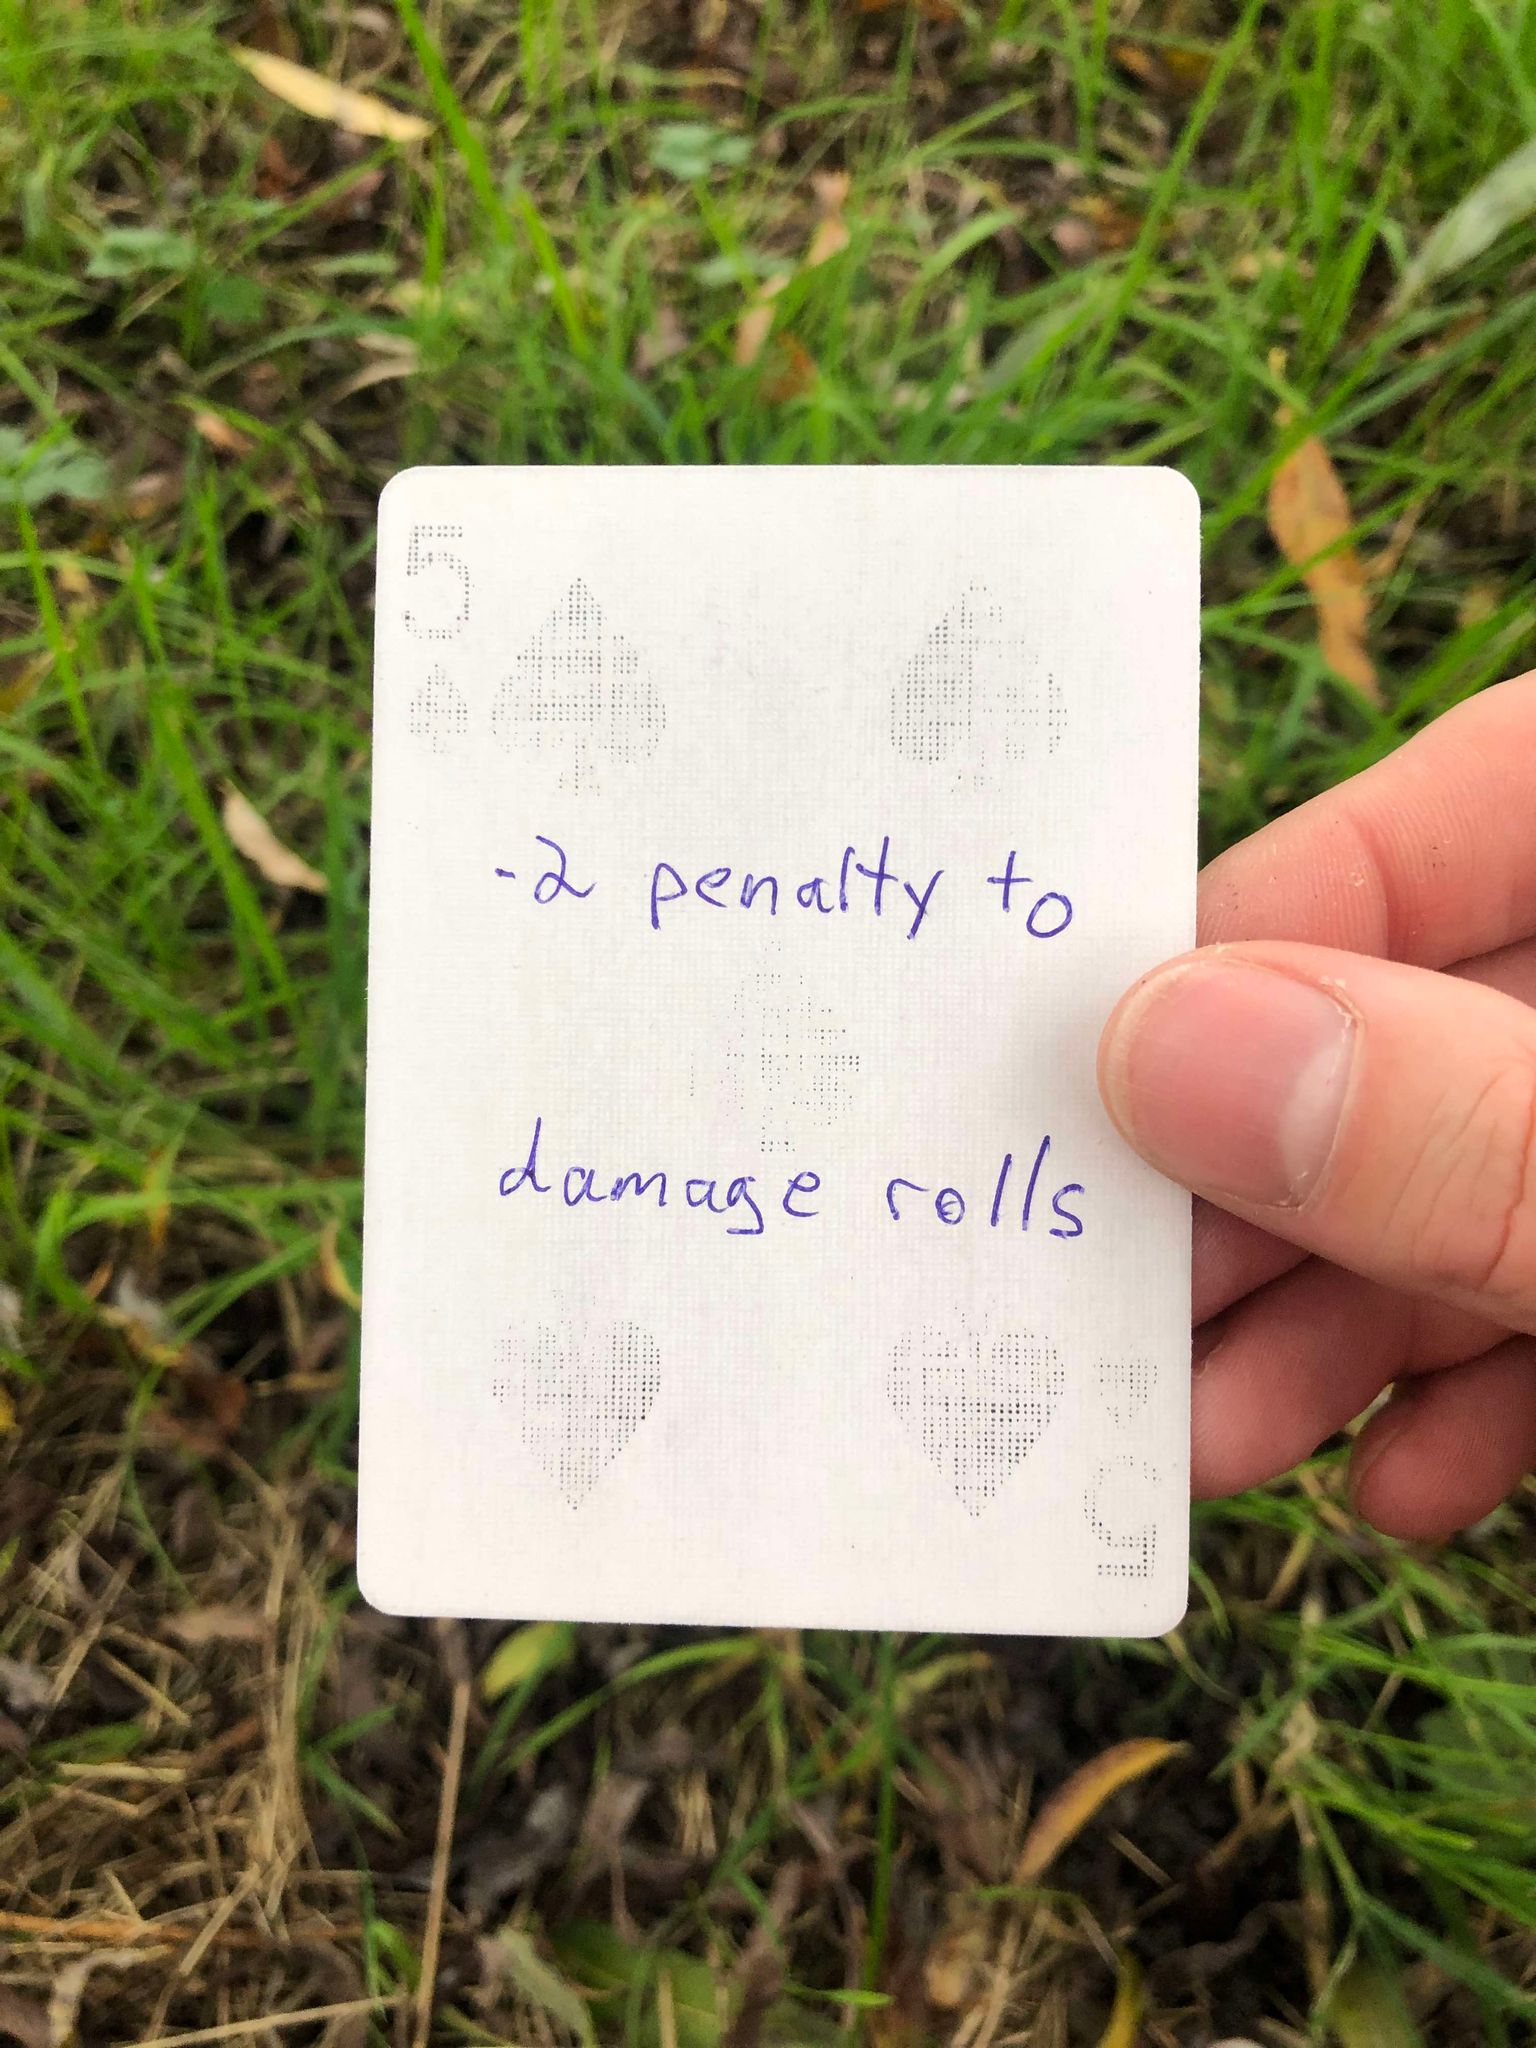 5
-2 penalty to
damage rolls
5